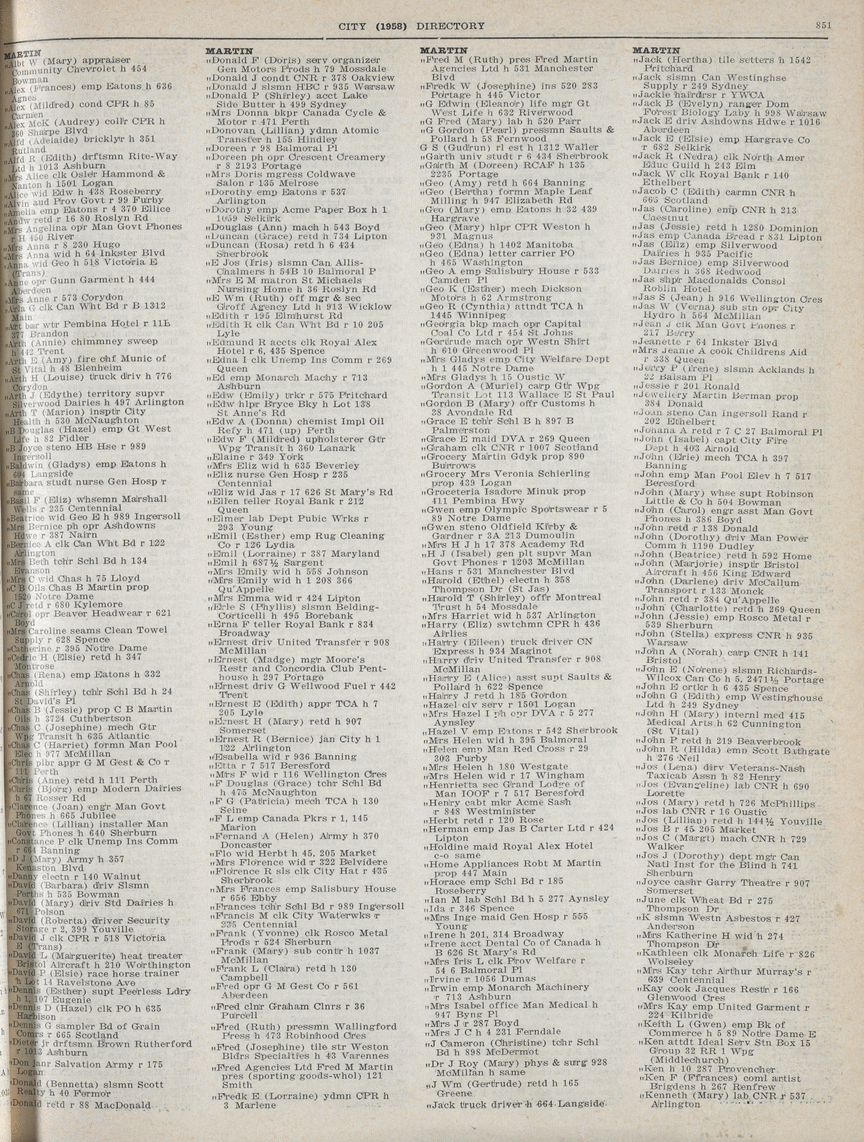 CITY (1958) DIRECTORY
851
MARTIN
„Albt W (Mary) appraiser
Community Chevrolet h 454
Bowman
„Alex (Frances) emp Eatons h 636
Agnes
„Alex (Mildred) cond CPR h 85
„Alex McK (Audrey) collr CPR h
260 Sharpe Blvd
„Alfd (Adelaide) bricklyr h 351
Rutland
„Alfd R (Edith) drftsmn Rite-Way
Ltd h 1013 Ashburn
„Mrs Alice clk Osler Hammond &
Nanton h 1501 Logan
„Alice wid Edw h 438 Roseberry
„Alvin aud Prov Govt r 99 Furby
„Amelia emp Eatons r 4 370 Ellice
„Andw retd r 16 80 Roslyn Rd
„Mrs Angelina opr Man Govt Phones
r H 450 River
„Mrs Anna r 8 230 Hugo
„Mrs Anna wid h 64 Inkster Blvd
„Anna wid Geo h 518 Victoria E
(Trans)
„Anne opr Gunn Garment h 444
Aberdeen
„Mrs Anne r 573 Corydon
G clk Can Wht Bd r B 1312
Main
„Art bar wtr Pembina Hotel r 11E
377 Brandon
„Arth (Annie) chimney sweep
h 442 Trent
„Arth E (Amy) fire chf Munic of
St Vital h 48 Blenheim
„Arth H (Louise) truck driv h 776
Corydon
„Arth J (Edythe) territory supvr
Silverwood Dairies h 497 Arlington
„Arth T (Marion) insptr City
Health h 530 McNaughton
„B Douglas (Hazel) emp Gt West
Life h 82 Fidler
„B Joyce steno HB Hse r 989
Ingersoll
„Baldwin (Gladys) emp Eatons h
694 Langside
„Barbara studt nurse Gen Hosp r
same
„Basil F (Eliz) whsemn Marshall
Wells r 235 Centennial
„Beatrice wid Geo E h 989 Ingersoll
„Mrs Bernice ph opr Ashdowns
Hdwe r 387 Nairn
„Bernice A clk Can Wht Bd r 122
Arlington
„Mrs Beth tchr Schl Bd h 134
Evanson
„Mrs C wid Chas h 75 Lloyd
„C B Oils Chas B Martin prop
1520 Notre Dame
„C J retd r 680 Kylemore
„Carol opr Beaver Headwear r 621
Boyd
„Mrs Caroline seams Clean Towel
Supply r 628 Spence
„Catherine r 395 Notre Dame
„Cedric H (Elsie) retd h 347
Montrose
„Chas (Rena) emp Eatons h 332
Arnold
„Chas (Shirley) tchr Schl Bd h 24
St David's Pl
„Chas B (Jessie) prop C B Martin
Oils h 3724 Cuthbertson
„Chas C (Josephine) mech Gtr
Wpg Transit h 635 Atlantic
„Chas C (Harriet) formn Man Pool
Elev h 977 McMillan
„Chris plbr appr G M Gest & Co r
111 Perth
„Chris (Anne) retd h 111 Perth
„Chris (Bjorg) emp Modern Dairies
h 67 Rosser Rd
„Clarence (Joan) engr Man Govt
Phones h 665 Jubilee
„Clarence (Lillian) installer Man
Govt Phones h 640 Sherburn
„Constance P clk Unemp Ins Comm
r 664 Banning
„D J (Mary) Army h 357
Kenaston Blvd
„Danny electn r 140 Walnut
„David (Barbara) driv Slsmn
Perths h 535 Bowman
„David (Mary) driv Std Dairies h
671 Polson
„David (Roberta) driver Security
Storage r 2, 399 Youville
„David J clk CPR r 518 Victoria
E (Trans)
„David L (Marguerite) heat treater
Bristol Aircraft h 210 Worthington
„David P (Elsie) race horse trainer
h Lot 14 Ravelstone Ave
„Dennis (Esther) supt Peerless Ldry
h 1, 107 Eugenie
„Dennis D (Hazel) clk PO h 635
Harbison
„Dennis G sampler Bd of Grain
Comrs r 665 Scotland
„Dieter jr drftsmn Brown Rutherford
r 1013 Ashburn
„Don janr Salvation Army r 175
Logan
„Donald (Bennetta) slsmn Scott
Realty h 40 Fermor
„Donald retd r 88 MacDonald
MARTIN
„Donald F (Doris) serv organizer
Gen Motors Prods h 79 Mossdale
„Donald J condt CNR r 378 Oakview
„Donald J slsmn HBC r 935 Warsaw
„Donald P (Shirley) acct Lake
Side Butter h 499 Sydney
„Mrs Donna bkpr Canada Cycle &
Motor r 471 Perth
„Donovan (Lillian) ydmn Atomic
Transfer h 155 Hindley
„Doreen r 98 Balmoral Pl
„Doreen ph opr Crescent Creamery
r 8 2193 Portage
„Mrs Doris mgress Coldwave
Salon r 135 Melrose
„Dorothy emp Eatons r 537
Arlington
„Dorothy emp Acme Paper Box h 1
1059 Selkirk
„Douglas (Ann) mach h 543 Boyd
„Duncan (Grace) retd h 734 Lipton
„Duncan (Rosa) retd h 6 434
Sherbrook
„E Jos (Iris) slsmn Can Allis-
Chalmers h 54B 10 Balmoral P
„Mrs E M matron St Michaels
Nursing Home h 36 Roslyn Rd
„E Wm (Ruth) off mgr & sec
Groff Agency Ltd h 913 Wicklow
„Edith r 195 Elmhurst Rd
„Edith R clk Can Wht Bd r 10 205
Lyle
„Edmund R accts clk Royal Alex
Hotel r 6, 435 Spence
„Edna I clk Unemp Ins Comm r 269
Queen
„Ed emp Monarch Machy r 713
Ashburn
„Edw (Emily) trkr r 575 Pritchard
„Edw hlpr Bryce Bky h Lot 138
St Anne's Rd
„Edw A (Donna) chemist Impl Oil
Refy h 471 (up) Perth
„Edw F (Mildred) upholsterer Gtr
Wpg Transit h 360 Lanark
„Elaine r 349 York
„Mrs Eliz wid h 635 Beverley
„Eliz nurse Gen Hosp r 235
Centennial
„Eliz wid Jas r 17 626 St Mary's Rd
„Ellen teller Royal Bank r 212
Queen
„Elmer lab Dept Pubic Wrks r
293 Young
„Emil (Esther) emp Rug Cleaning
Co r 126 Lydia
„Emil (Lorraine) r 387 Maryland
„Emil h 687½ Sargent
„Mrs Emily wid h 558 Johnson
„Mrs Emily wid h 1 208 366
Qu'Appelle
„Mrs Emma wid r 424 Lipton
„Erle S (Phyllis) slsmn Belding-
Corticelli h 495 Borebank
„Erna P teller Royal Bank r 834
Broadway
„Ernest driv United Transfer r 908
McMillan
„Ernest (Madge) mgr Moore's
Restr and Concordia Club Pent-
house h 297 Portage
„Ernest driv G Wellwood Fuel r 442
Trent
„Ernest E (Edith) appr TCA h 7
205 Lyle
„Ernest H (Mary) retd h 907
Somerset
„Ernest R (Bernice) jan City h 1
122 Arlington
„Esabella wid r 936 Banning
„Etta r 7 517 Beresford
„Mrs F wid r 116 Wellington Cres
„F Douglas (Grace) tchr Schl Bd
h 475 McNaughton
„F G (Patricia) mech TCA h 130
Seine
„F L emp Canada Pkrs r 1, 145
Marion
„Fernand A (Helen) Army h 370
Doncaster
„Flo wid Herbt h 45, 205 Market
„Mrs Florence wid r 322 Belvidere
„Florence R sls clk City Hat r 435
Sherbrook
„Mrs Frances emp Salisbury House
r 656 Ebby
„Frances tchr Schl Bd r 989 Ingersoll
„Francis M clk City Waterwks r
235 Centennial
„Frank (Yvonne) clk Rosco Metal
Prods r 524 Sherburn
„Frank (Mary) sub contr h 1037
McMillan
„Frank L (Clara) retd h 130
Campbell
„Fred opr G M Gest Co r 561
Aberdeen
„Fred clnr Graham Clnrs r 36
Purcell
„Fred (Ruth) pressmn Wallingford
Press h 473 Robinhood Cres
„Fred (Josephine) tile str Weston
Bldrs Specialties h 43 Varennes
„Fred Agencies Ltd Fred M Martin
pres (sporting goods-whol) 121
Smith
„Fredk E (Lorraine) ydmn CPR h
3 Marlene
MARTIN
„Fred M (Ruth) pres Fred Martin
Agencies Ltd h 531 Manchester
Blvd
„Fredk W (Josephine) ins 520 283
Portage h 445 Victor
„G Edwin (Eleanor) life mgr Gt
West Life h 632 Riverwood
„G Fred (Mary) lab h 520 Parr
„G Gordon (Pearl) pressmn Saults &
Pollard h 58 Fernwood
„G S (Gudrun) rl est h 1312 Waller
„Garth univ studt r 6 434 Sherbrook
„Garth M (Doreen) RCAF h 135
2235 Portage
„Geo (Amy) retd h 664 Banning
„Geo (Bertha) formn Maple Leaf
Milling h 947 Elizabeth Rd
„Geo (Mary) emp Eatons h 32 439
Hargrave
„Geo (Mary) hlpr CPR Weston h
931 Magnus
„Geo (Edna) h 1402 Manitoba
„Geo (Edna) letter carrier PO
h 465 Washington
„Geo A emp Salisbury House r 533
Camden Pl
„Geo K (Esther) mech Dickson
Motors h 62 Armstrong
„Geo R (Cynthia) attndt TCA h
1445 Winnipeg
„Georgia bkp mach opr Capital
Coal Co Ltd r 454 St Johns
„Gertrude mach opr Westn Shirt
h 610 Greenwood Pl
„Mrs Gladys emp City Welfare Dept
h 1 445 Notre Dame
„Mrs Gladys h 15 Oustic W
„Gordon A (Muriel) carp Gtr Wpg
Transit Lot 112 Wallace E St Paul
„Gordon B (Mary) offr Customs h
28 Avondale Rd
„Grace E tchr Schl B h 897 B
Palmerston
„Grace E maid DVA r 269 Queen
„Graham clk CNR r 1007 Scotland
„Grocery Martin Gdyk prop 890
Burrows
„Grocery Mrs Veronia Schierling
prop 439 Logan
„Groceteria Isadore Minuk prop
411 Pembina Hwy
„Gwen emp Olympic Sportswear r 5
89 Notre Dame
„Gwen steno Oldfield Kirby &
Gardner r 3A 213 Dumoulin
„Mrs H J h 17 378 Academy Rd
„H J (Isabel) gen plt supvr Man
Govt Phones r 1203 McMillan
„Hans r 531 Manchester Blvd
„Harold (Ethel) electn h 358
Thompson Dr (St Jas)
„Harold T (Shirley) offr Montreal
Trust h 54 Mossdale
„Mrs Harriet wid h 537 Arlington
„Harry (Eliz) swtchmn CPR h 436
Airlies
„Harry (Eileen) truck driver CN
Express h 934 Maginot
„Harry driv United Transfer r 908
McMillan
„Harry E (Alice) asst supt Saults &
Pollard h 622 Spence
„Harry J retd h 185 Gordon
„Hazel civ serv r 1501 Logan
„Mrs Hazel I ph opr DVA r 5 277
Aynsley
„Hazel V emp Eatons r 542 Sherbrook
„Mrs Helen wid h 395 Balmoral
„Helen emp Man Red Cross r 29
303 Furby
„Mrs Helen h 180 Westgate
„Mrs Helen wid r 17 Wingham
„Henrietta sec Grand Lodge of
Man IOOF r 7 517 Beresford
„Henry cabt mkr Acme Sash
r 848 Westminister
„Herbt retd r 120 Rose
„Herman emp Jas B Carter Ltd r 424
Lipton
„Holdine maid Royal Alex Hotel
c-o same
„Home Appliances Robt M Martin
prop 447 Main
„Horace emp Schl Bd r 185
Roseberry
„Ian M lab Schl Bd h 5 277 Aynsley
„Ida r 346 Spence
„Mrs Inge maid Gen Hosp r 555
Young
„Irene h 201, 314 Broadway
„Irene acct Dental Co of Canada h
B 626 St Mary's Rd
„Mrs Iris L clk Prov Welfare r
54 6 Balmoral Pl
„Irvine r 1056 Dumas
„Irwin emp Monarch Machinery
r 713 Ashburn
„Mrs Isabel office Man Medical h
947 Byng Pl
„Mrs J r 287 Boyd
„Mrs J C h 4 231 Ferndale
„J Cameron (Christine) tchr Schl
Bd h 898 McDermot
„Dr J Roy (Mary) phys & surg 928
McMillan h same
„J Wm (Gertrude) retd h 165
Greene
„Jack truck driver h 664 Langside
MARTIN
„Jack (Hertha) tile setters h 1542
Pritchard
„Jack slsmn Can Westinghse
Supply r 249 Sydney
„Jackie hairdrssr r YWCA
„Jack B (Evelyn) ranger Dom
Forest Biology Laby h 998 Warsaw
„Jack E driv Ashdowns Hdwe r 1016
Aberdeen
„Jack E (Elsie) emp Hargrave Co
r 682 Selkirk
„Jack R (Nedra) clk North Amer
Educ Guild h 243 Elm
„Jack W clk Royal Bank r 140
Ethelbert
„Jacob C (Edith) carmn CNR h
665 Scotland
„Jas (Caroline) emp CNR h 213
Chestnut
„Jas (Jessie) retd h 1280 Dominion
„Jas emp Canada Bread r 831 Lipton
„Jas (Eliz) emp Silverwood
Dairies h 935 Pacific
„Jas (Bernice) emp Silverwood
Dairies h 368 Redwood
„Jas shpr Macdonalds Consol
Roblin Hotel
„Jas S (Jean) h 916 Wellington Cres
„Jas W (Verna) sub stn opr City
Hydro h 564 McMillan
„Jean J clk Man Govt Phones r
217 Berry
„Jeanette r 64 Inkster Blvd
„Mrs Jeanie A cook Childrens Aid
r 338 Queen
„Jerry P (Irene) slsmn Acklands h
22 Balsam Pl
„Jessie r 201 Ronald
„Jewellery Martin Berman prop
384 Donald
„Joan steno Can Ingersoll Rand r
202 Ethelbert
„Johana A retd r 7 C 27 Balmoral Pl
„John (Isabel) capt City Fire
Dept h 403 Arnold
„John (Erie) mech TCA h 397
Banning
„John emp Man Pool Elev h 7 517
Beresford
„John (Mary) whse supt Robinson
Little & Co h 504 Bowman
„John (Carol) engr asst Man Govt
Phones h 386 Boyd
„John retd r 138 Donald
„John (Dorothy) driv Man Power
Comm h 1190 Dudley
„John (Beatrice) retd h 592 Home
„John (Marjorie) insptr Bristol
Aircraft h 456 King Edward
„John (Darlene) driv McCallum
Transport r 133 Monck
„John retd r 384 Qu'Appelle
„John (Charlotte) retd h 269 Queen
„John (Jessie) emp Rosco Metal r
539 Sherburn
„John (Stella) express CNR h 935
Warsaw
„John A (Norah) carp CNR h 141
Bristol
„John E (Norene) slsmn Richards-
Wilcox Can Co h 5, 2471½ Portage
„John E crtlr h 6 435 Spence
„John G (Edith) emp Westinghouse
Ltd h 249 Sydney
„John H (Mary) internl med 415
Medical Arts h 62 Cunnington
(St Vital)
„John P retd h 219 Beaverbrook
„John R (Hilda) emp Scott Bathgate
h 276 Neil
„Jos (Lena) dirv Veterans-Nash
Taxicab Assn h 82 Henry
„Jos (Evangeline) lab CNR h 690
Lorette
„Jos (Mary) retd h 726 McPhillips
„Jos lab CNR r 16 Oustic
„Jos (Lillian) retd h 144½ Youville
„Jos B r 45 205 Market
„Jos C (Margt) mach CNR h 729
Walker
„Jos J (Dorothy) dept mgr Can
Natl Inst for the Blind h 741
Sherburn
„Joyce cashr Garry Theatre r 907
Somerset
„June clk Wheat Bd r 275
Thompson Dr
„K slsmn Westn Asbestos r 427
Anderson
„Mrs Katherine H wid h 274
Thompson Dr
„Kathleen clk Monarch Life r 826
Wolseley
„Mrs Kay tchr Arthur Murray's r
639 Centennial
„Kay cook Jacques Restr r 166
Glenwood Cres
„Mrs Kay emp United Garment r
224 Kilbride
„Keith L (Gwen) emp Bk of
Commerce h 5 89 Notre Dame E
„Ken attdt Ideal Serv Stn Box 15
Group 32 RR 1 Wpg
(Middlechurch)
„Ken h 10 287 Provencher
„Ken F (Ffrances) coml artist
Brigdens h 267 Renfrew
„Kenneth (Mary) lab CNR r 537
Arlington